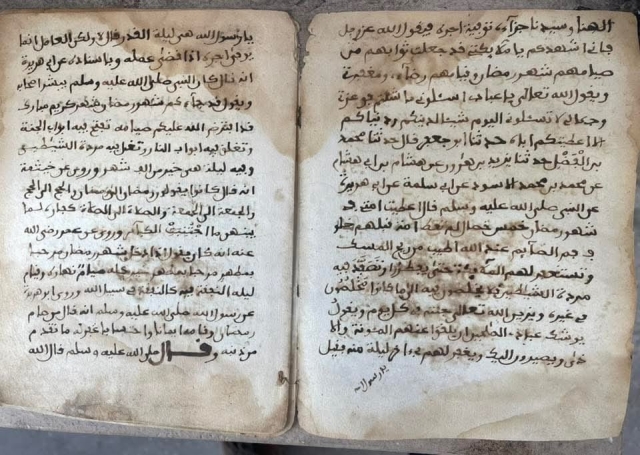 الهنا وسيدنا جزآءه توفية اجره فيقول الله عز وجل
فاني اشهدكم يا ملائكتي قد جعلت ثوابهم من
صيامهم شهر رمضان وقيامهم رضآءي ومغفرتي
ويقول الله تعالى يا عبادي اسئلوني ما شئتم فوعزتي
وجلالي لا تسئلوني اليوم شيئا لدينكم ودنياكم
الا اعطيتكم اياه حدثنا ابو جعفر قال حدثنا محمد
بن الفضل حدثنا يزيد بن هرون عن هشام بن ابي هشام
عن محمد بن محمد الاسود عن ابي سلمة عن ابي هريرة
عن النبي صلى الله عليه وسلم قال اعطيت امتي في
شهر رمضان خمس خصال لم تعطها امة قبلهم خلوف
فم الصآيم عند الله اطيب من ريح المسك
وتستغفر لهم الملآئكة حتى يفطروا وتصفد فيه
مردة الشيطين فلا يخلصون فيه الى ما كانوا يخلصون
في غيره ويزين الله تعالى جنته في كل يوم ويقول
يوشك عبادي الصلحين ان يلقوا عنهم المونة والا
ذى ويصيرون اليك ويغفر لهم في ءاخر ليلة منه فقيل
يا رسول الله
يا رسول الله هي ليلة القدر قال لا ولكن العامل انما
يوفى اجره اذا قضى عمله وباسناده عن ابي هريرة
انه قال كان النبي صلى الله عليه وسلم يبشر اصحابه
ويقول قد جآءكم شهر رمضان شهر كريم مبارك
قد افترض الله عليكم صيامه تفتح فيه ابواب الجنة
وتغلق فيه ابواب النار وتغل فيه مردة الشيطين
وفيه ليلة هي خير من الف شهر وروي عن خيثمة
انه قال كانوا يقولون رمضان الى رمضان والحج الى الحج
والجمعة الى الجمعة والصلاة الى الصلاة كفارة لما
بينهن ما اجتنبت الكبآئر وروي عن عمر رضي الله
عنه انه كان يقول اذا دخل شهر رمضان مرحبا
بمطهر مرحبا بمطهر خير كله صيام نهاره وقيام
ليله النفقة فيه كالنفقة في سبيل الله وروى ابو هريرة
عن رسول الله صلى الله عليه وسلم انه قال من صام
رمضان وقامه ايمانا واحتسابا غفر له ما تقدم
من ذنبه وقال صلى الله عليه وسلم قال الله